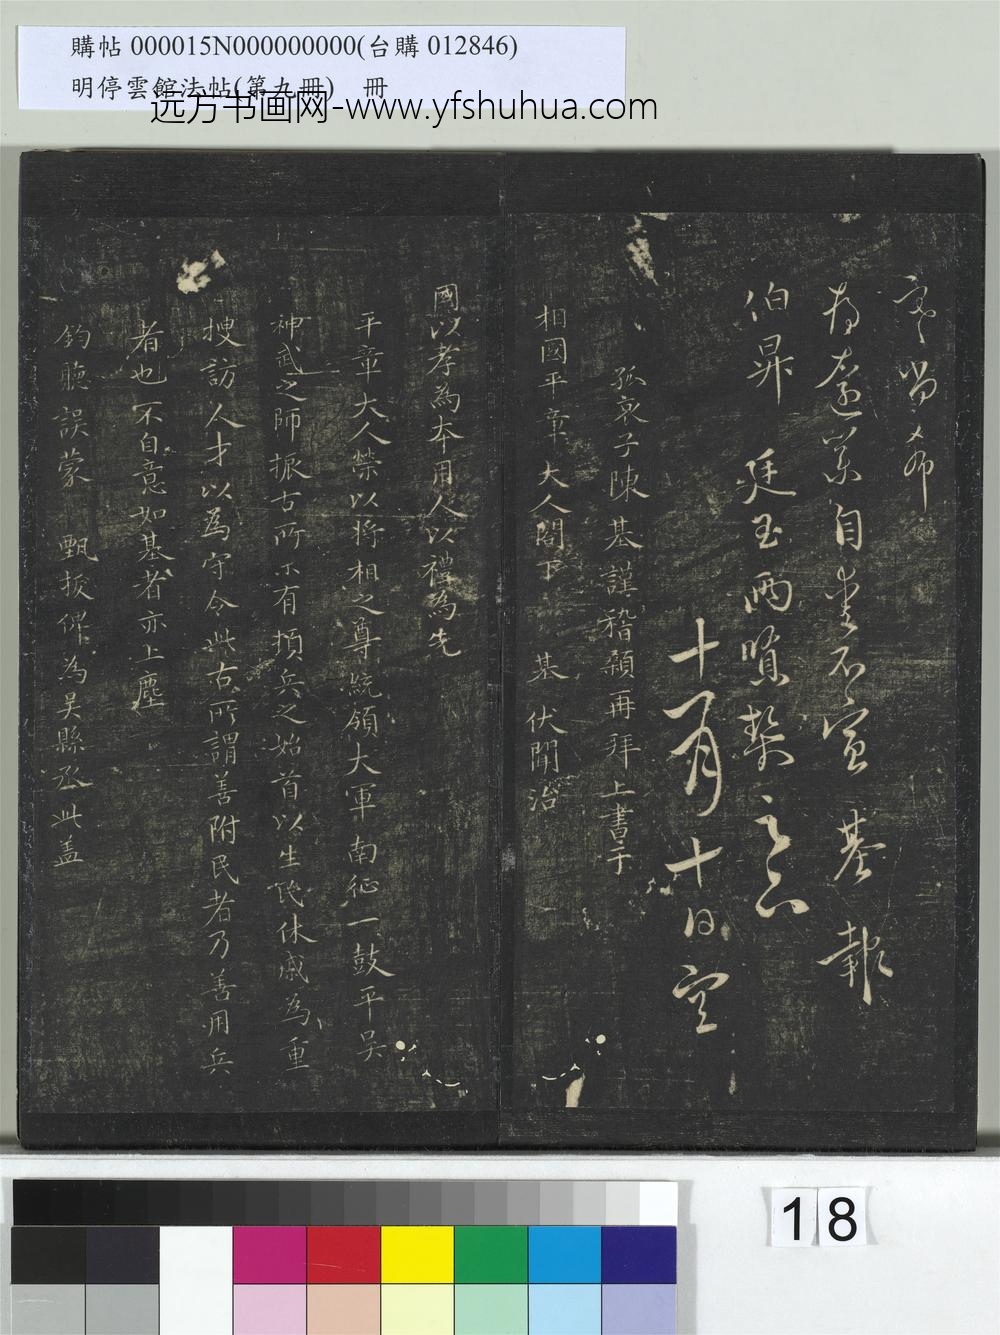 購帖 000015N000000000(台購 012846)
明停雲館法帖(第九冊) 冊
远方书画网-www.yfshuhua.com
當希
自愛不宣 基 報
伯昇 廷玉兩
十一月十日 空
孤哀子陳基謹稽顙再拜上書于
相國平章大人閣下 基 伏聞治
國以孝為本用人以禮為先
平章大人榮以將相之尊統領大軍南征一鼓平吳
神武之師振古所未有頓兵之始首以生民休戚為重
搜訪人才以為守令此古所謂善附民者乃善用兵
者也不自意如基者亦上塵
鈞聽誤蒙 甄拔俾為吳縣丞此蓋
18